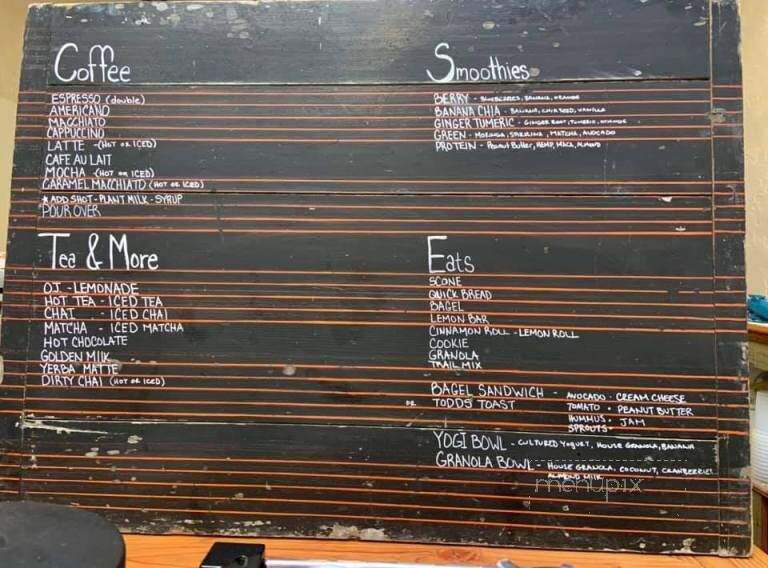 Coffee
ESPRESSO (double)
AMERICANO
MACCHIATO
CAPPUCCINO
LATTE - (HOT OR ICED)
CAFE AU LAIT
MOCHA (HOT OR ICED)
CARAMEL MACCHIATO (HOT OR ICED)
* ADD SHOT - PLANT MILK - SYRUP
POUR OVER
Tea & More
OJ - LEMONADE
HOT TEA - ICED TEA
CHAI - ICED CHAI
MATCHA - ICED MATCHA
HOT CHOCOLATE
GOLDEN MILK
YERBA MATTE
DIRTY CHAI (HOT OR ICED)
Smoothies
BERRY - BLUEBERRIES, BANANA, ORANGE
BANANA CHIA - BANANA, CHIA SEED, VANILLA
GINGER TUMERIC - GINGER ROOT, TUMERIC, ORANGE
GREEN - MORINGA, SPIRULINA, MATCHA, AVOCADO
PROTEIN - Peanut Butter, HEMP, MACA, ALMOND
Eats
SCONE
QUICK BREAD
BAGEL
LEMON BAR
CINNAMON ROLL - LEMON ROLL
COOKIE
GRANOLA
TRAIL MIX
BAGEL SANDWICH - AVOCADO · CREAM CHEESE
OR TODDS TOAST TOMATO · PEANUT BUTTER
HUMMUS · JAM
SPROUTS
YOGI BOWL - CULTURED YOGURT, HOUSE GRANOLA, BANANA
GRANOLA BOWL - HOUSE GRANOLA, COCONUT, CRANBERRIES
ALMOND MILK
menupix